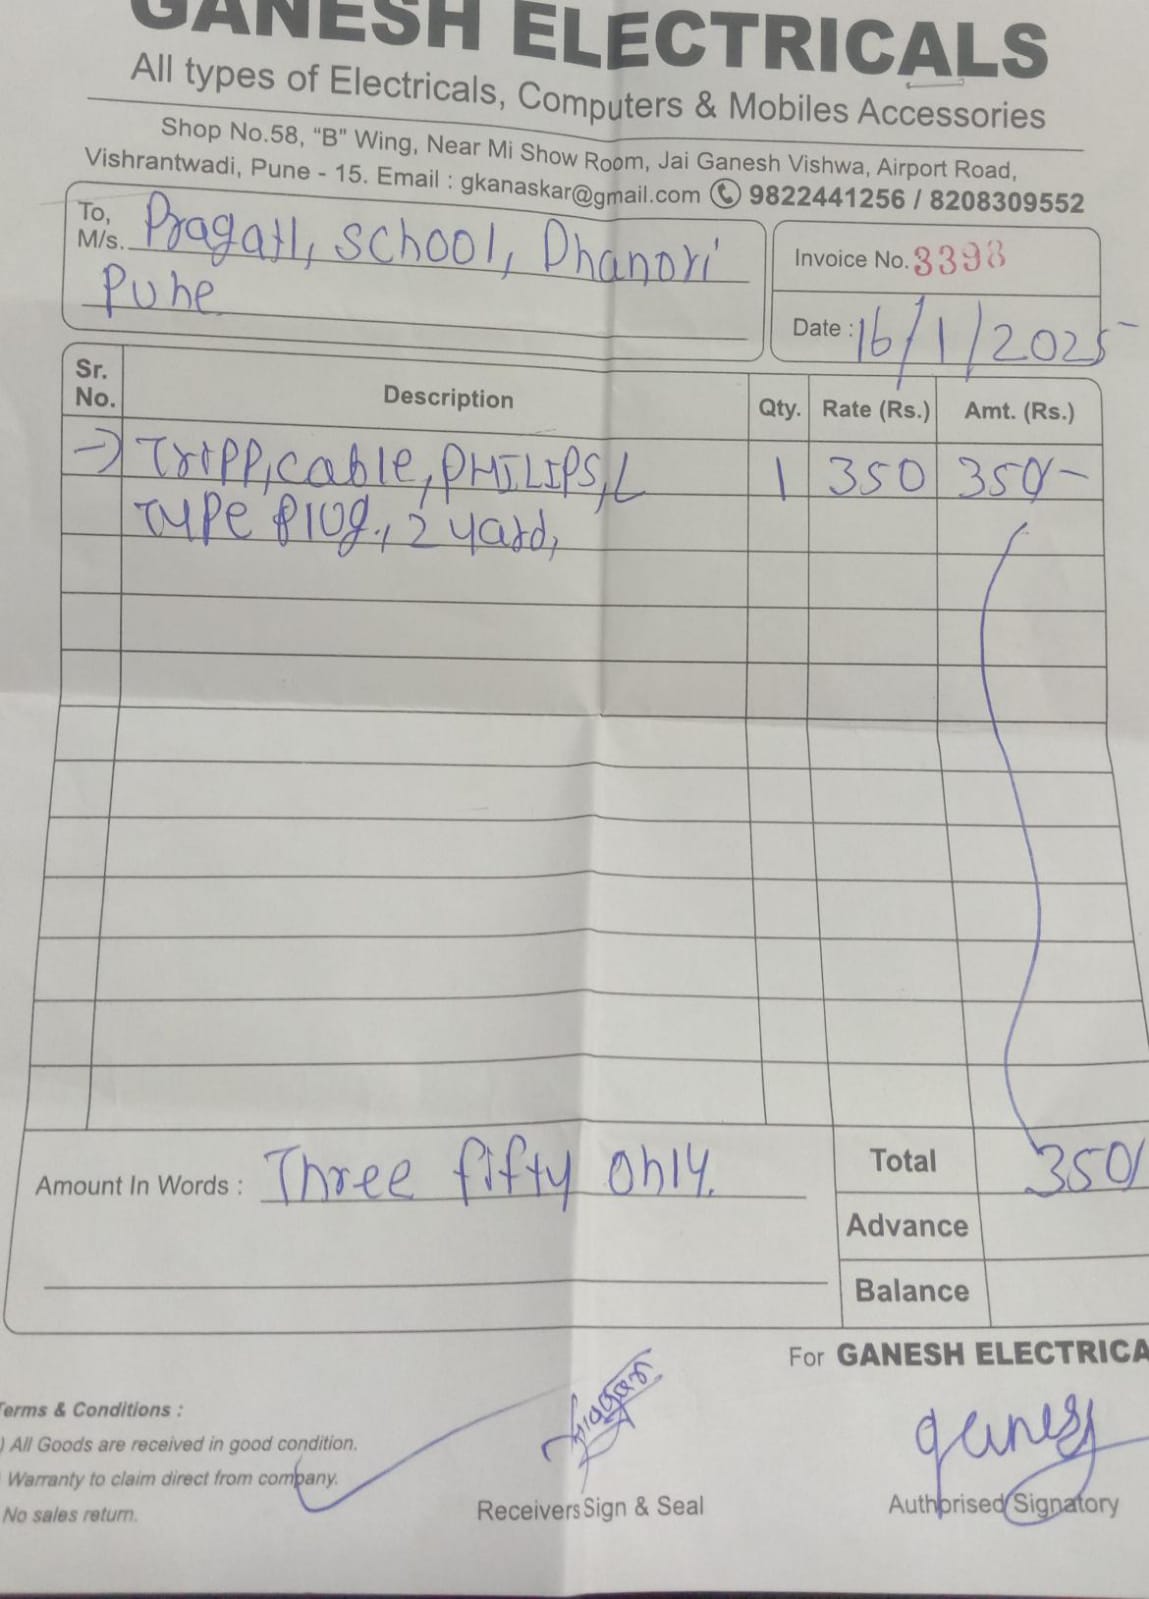 GANESH ELECTRICALS
All types of Electricals, Computers & Mobiles Accessories
Shop No.58, "B" Wing, Near Mi Show Room, Jai Ganesh Vishwa, Airport Road,
Vishrantwadi, Pune - 15. Email : gkanaskar@gmail.com 9822441256 / 8208309552
To,
M/s. Pragati, school, Dhanori
Pune
Invoice No. 3398
Date : 16/1/2025
Sr. No. Description Qty. Rate (Rs.) Amt. (Rs.)
→ Tripp, cable, PHILIPS, L 1 350 350/-
Type Plug., 2 yard,
Amount In Words : Three fifty only.
Total 350/
Advance
Balance
For GANESH ELECTRICA
Terms & Conditions :
) All Goods are received in good condition.
Warranty to claim direct from company.
No sales return.
Receivers Sign & Seal
ganesh
Authorised Signatory